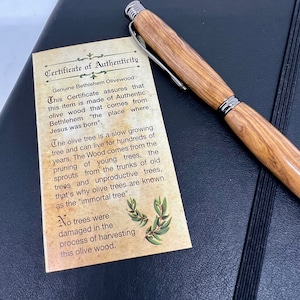 Certificate of Authenticity
Genuine Bethlehem Olivewood
This Certificate assures that
this item is made of Authentic
olive wood that comes from
Bethlehem "the place where
Jesus was born".
The olive tree is a slow growing
tree and can live for hundreds of
years. The Wood comes from the
pruning of young trees, the
sprouts from the trunks of old
trees and unproductive trees,
that's why olive trees are known
as the "immortal tree".
No trees were
damaged in the
process of harvesting
this olive wood.